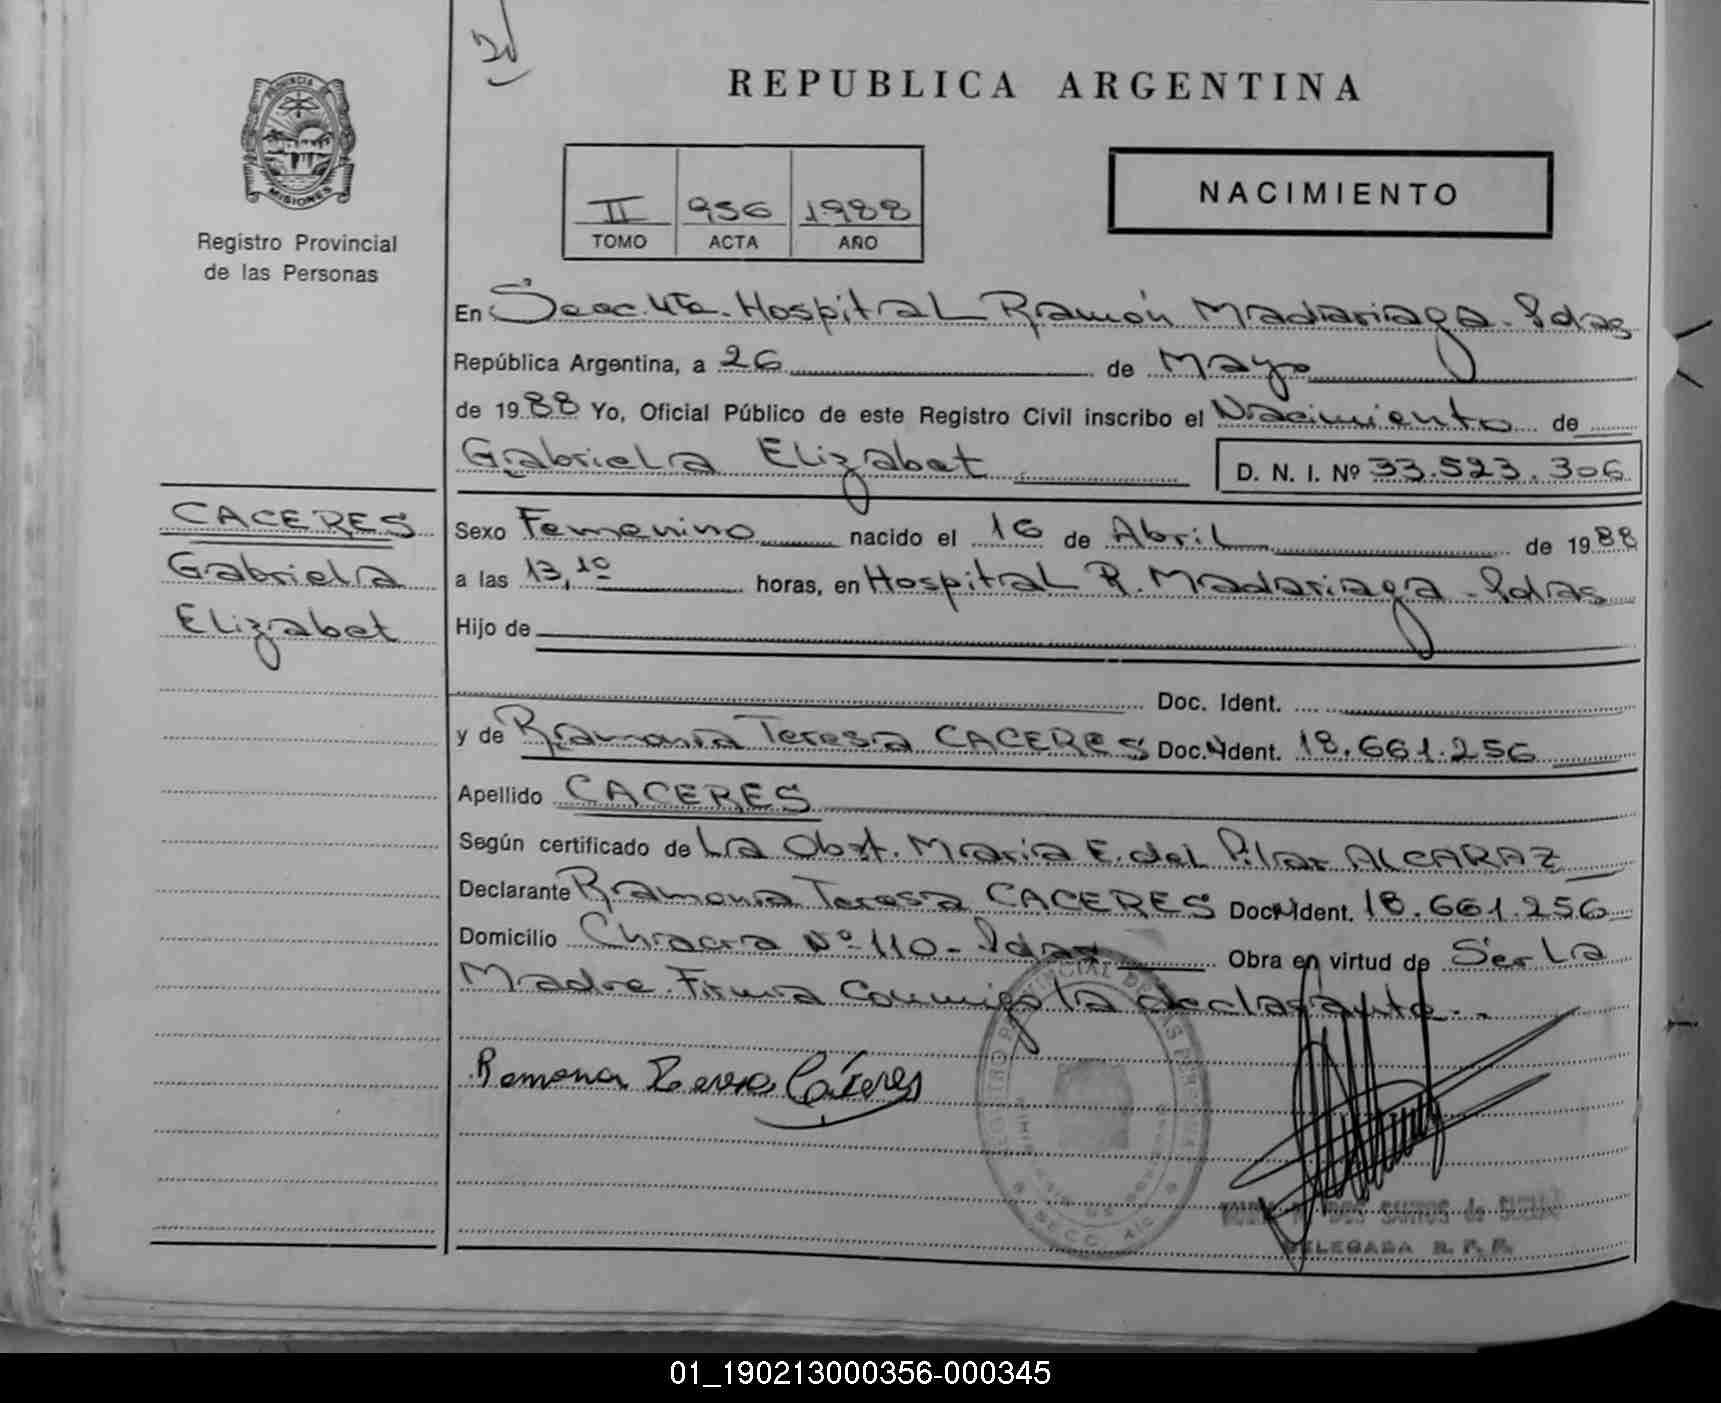 REPUBLICA ARGENTINA
PROVINCIA
MISIONES
Registro Provincial
de las Personas
II 956 1988
TOMO ACTA AÑO
NACIMIENTO
En Secc. 4ta. Hospital Ramón Madariaga - Pdas
República Argentina, a 26 de Mayo
de 1988 Yo, Oficial Público de este Registro Civil inscribo el Nacimiento de
Gabriela Elizabet D. N. I. Nº 33.523.306
CACERES
Gabriela
Elizabet
Sexo Femenino nacido el 16 de Abril de 1988
a las 13,10 horas, en Hospital R. Madariaga - Pdas
Hijo de
Doc. Ident.
y de Ramona Teresa CACERES Doc. Ident. 18.661.256
Apellido CACERES
Según certificado de La Obst. Maria E. del Pilar ALCARAZ
Declarante Ramona Teresa CACERES Doc. Ident. 18.661.256
Domicilio Chacra Nº 110 - Pdas Obra en virtud de Ser La
Madre. Firma Conmigo la declarante..
Ramona Teresa Cáceres
DOS SANTOS de
DELEGADA R. P. P.
01_190213000356-000345